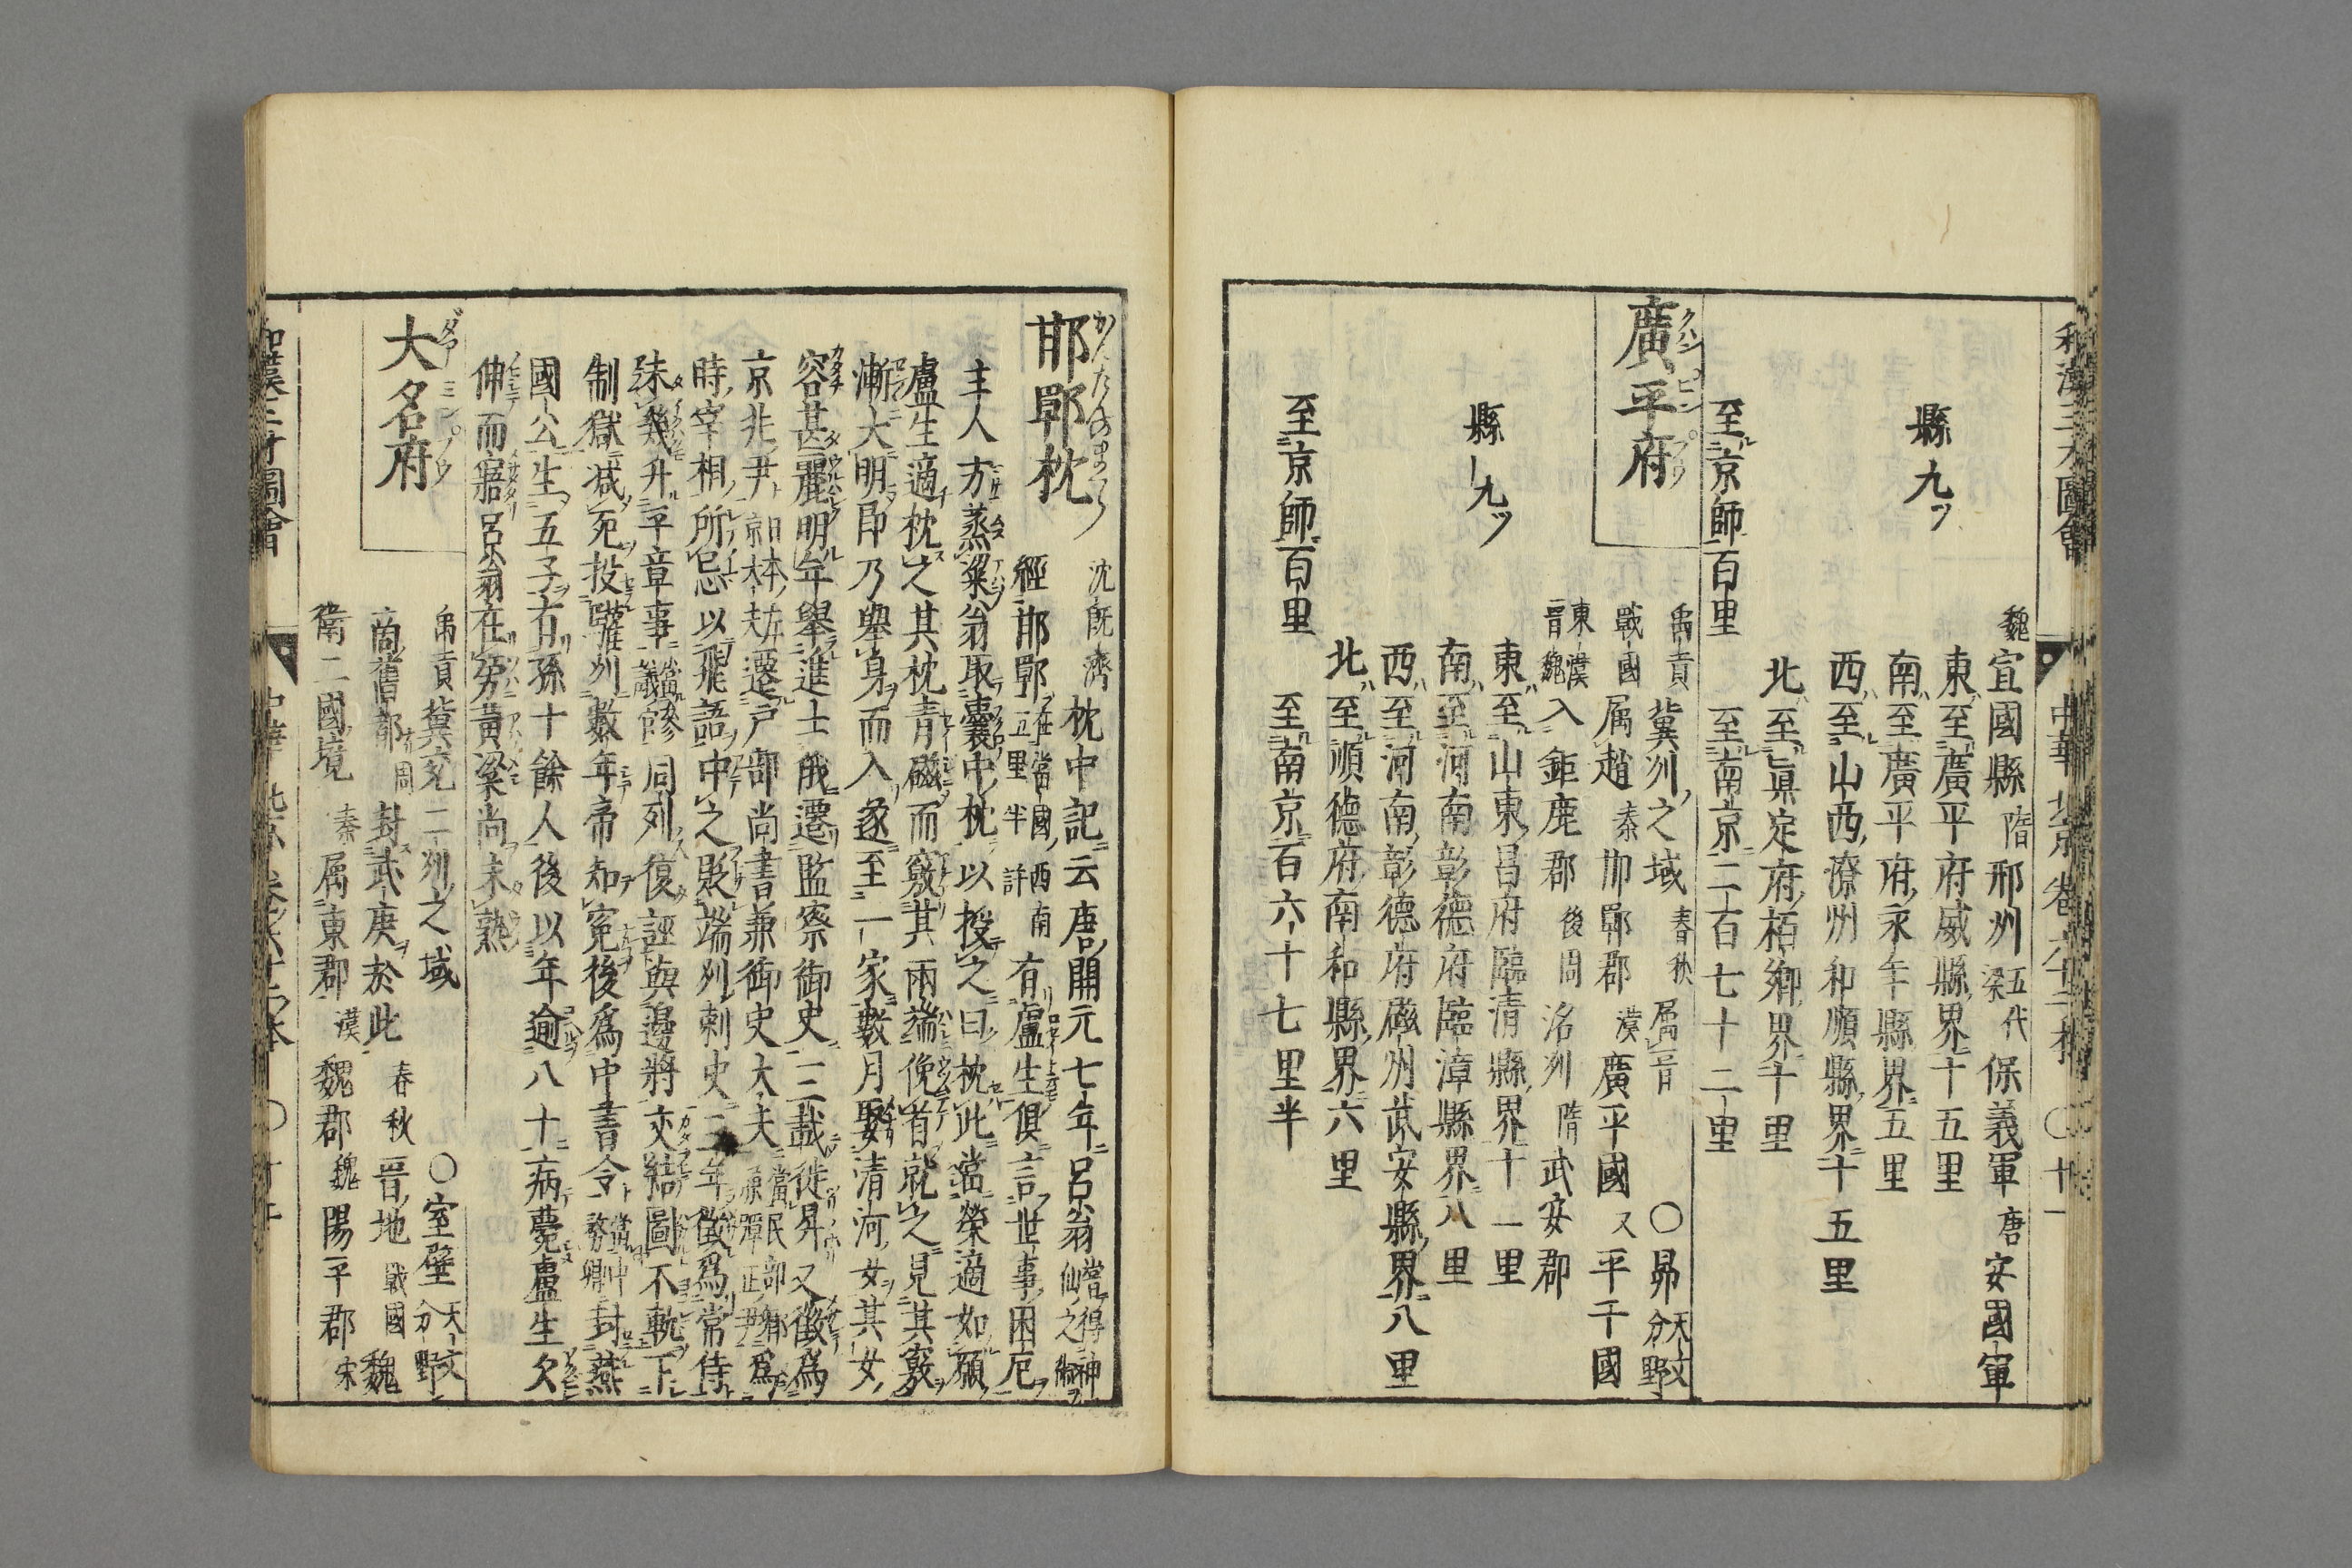 和漢三才圖會 中華 北京 卷六十二本 〇 十一
魏宣國縣 隋邢州 五代梁保義軍 唐安國軍
縣九ツ
東ハ至廣平府威縣界十五里
南ハ至廣平府永年縣界五里
西ハ至山西遼州和順縣界十五里
北ハ至眞定府栢鄉界十里
至京師百里 至南京二百七十二里
廣平府 クハン ピン プウ
禹貢冀州之域 春秋屬晉 〇昴 天文分野
戰國属趙 秦邯鄲郡 漢廣平國 又平干國
東漢晉魏入鉅鹿郡 後周洺州 隋武安郡
縣九ツ
東ハ至山東昌府臨清縣界十一里
南ハ至河南彰德府臨漳縣界八里
西ハ至河南彰德府磁州武安縣界八里
北ハ至順德府南和縣界六里
至京師百里 至南京百六十七里半
邯鄲枕 かんたんのまくら
沈既濟枕中記云唐開元七年呂翁 當得神仙之術
經邯鄲 在當國西南五里半許 有盧生俱言世事困厄
主人方蒸粱翁取囊中枕以授之曰枕此當榮適如願
盧生適枕之其枕青磁而竅其兩端俛首就之見其竅
漸大明即乃舉身而入遂至一家數月娶清河女其女
容甚麗明年舉進士俄遷監察御史一二載徙昇又徵爲
京兆尹 日本京大夫 遷戶部尚書兼御史大夫 爲
時宰相所忌以飛語中之貶端州刺史三年徵爲常侍
未幾升平章事 當參議官 同列復誣與邊將交結圖不軌下
制獄減死投驩州數年帝知寃後爲中書令 當中務卿 封燕
國公生五子有孫十餘人後以年逾八十病薨盧生欠
伸而寤呂翁在旁黃粱尚未熟
大名府 ダアミンプウ
禹貢冀兗二州之域 〇室壁 天文分野
商舊都 周封武庚於此 春秋晉地 戰國魏
衛二國境 秦属東郡 漢魏郡 魏陽平郡 宋
和漢三才圖會 中華 北京 卷六十二本 〇